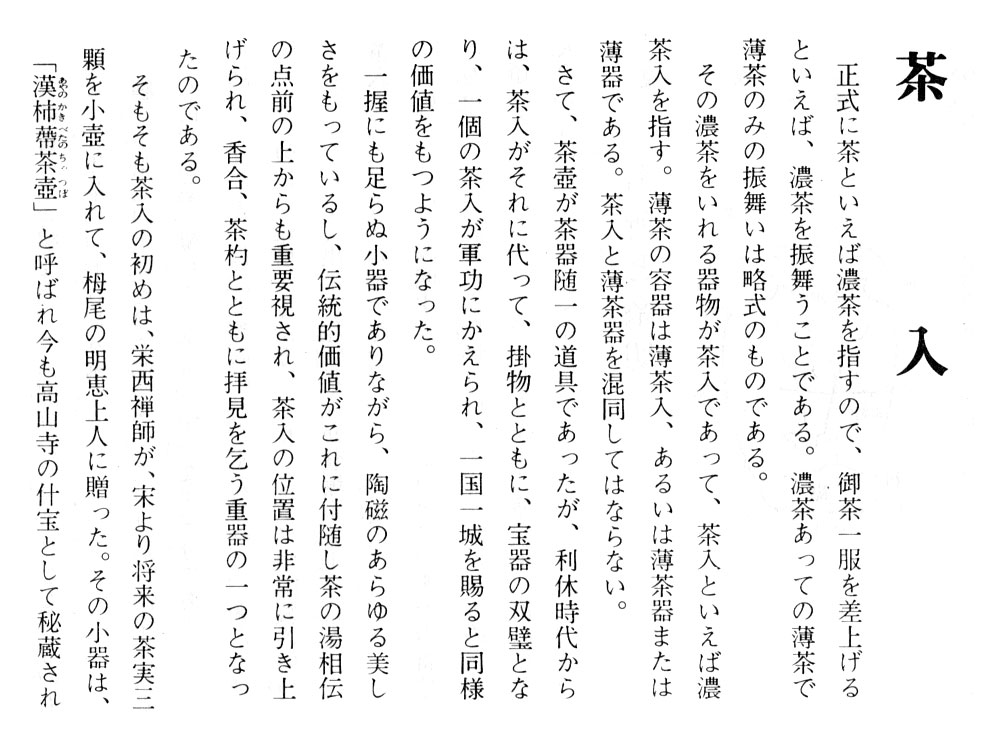 茶入
正式に茶といえば濃茶を指すので、御茶一服を差上げる
といえば、濃茶を振舞うことである。濃茶あっての薄茶で
薄茶のみの振舞いは略式のものである。
その濃茶をいれる器物が茶入であって、茶入といえば濃
茶入を指す。薄茶の容器は薄茶入、あるいは薄茶器または
薄器である。茶入と薄茶器を混同してはならない。
さて、茶壺が茶器随一の道具であったが、利休時代から
は、茶入がそれに代って、掛物とともに、宝器の双璧とな
り、一個の茶入が軍功にかえられ、一国一城を賜ると同様
の価値をもつようになった。
一握にも足らぬ小器でありながら、陶磁のあらゆる美し
さをもっているし、伝統的価値がこれに付随し茶の湯相伝
の点前の上からも重要視され、茶入の位置は非常に引き上
げられ、香合、茶杓とともに拝見を乞う重器の一つとなっ
たのである。
そもそも茶入の初めは、栄西禅師が、宋より将来の茶実三
顆を小壺に入れて、栂尾の明恵上人に贈った。その小器は、
「漢柿蔕茶壺」と呼ばれ今も高山寺の什宝として秘蔵され